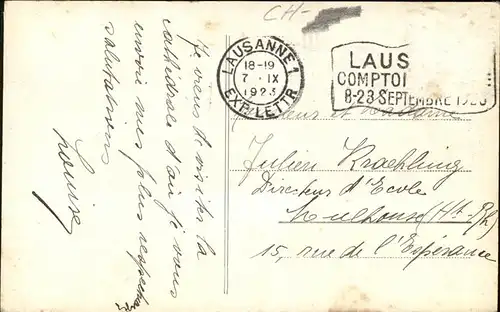 CH-
LAUSANNE 1
18-19
7. IX
1923
EXP. LETTR
LAUS
COMPTOI
8-23 SEPTEMBRE 1923
Je viens de visiter la
cathédrale d'où je vous
envoie mes plus respect
salutations
Louise
Monsieur et Madame
Julien Kraehling
Directeur d'Ecole
Mulhouse (Ht-Rh)
15, rue de l'Espérance